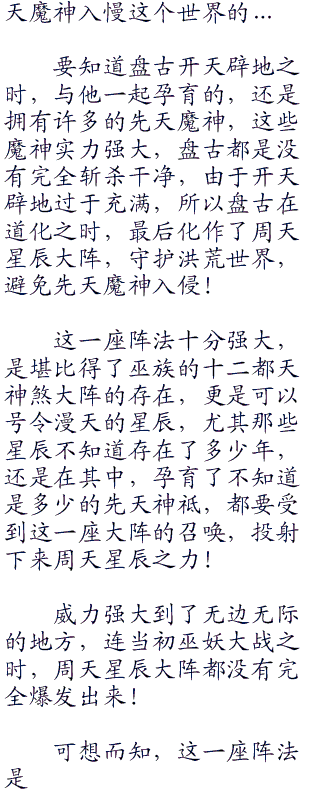 天魔神入慢这个世界的…
要知道盘古开天辟地之
时，与他一起孕育的，还是
拥有许多的先天魔神，这些
魔神实力强大，盘古都是没
有完全斩杀干净，由于开天
辟地过于充满，所以盘古在
道化之时，最后化作了周天
星辰大阵，守护洪荒世界，
避免先天魔神入侵！
这一座阵法十分强大，
是堪比得了巫族的十二都天
神煞大阵的存在，更是可以
号令漫天的星辰，尤其那些
星辰不知道存在了多少年，
还是在其中，孕育了不知道
是多少的先天神祇，都要受
到这一座大阵的召唤，投射
下来周天星辰之力！
威力强大到了无边无际
的地方，连当初巫妖大战之
时，周天星辰大阵都没有完
全爆发出来！
可想而知，这一座阵法
是